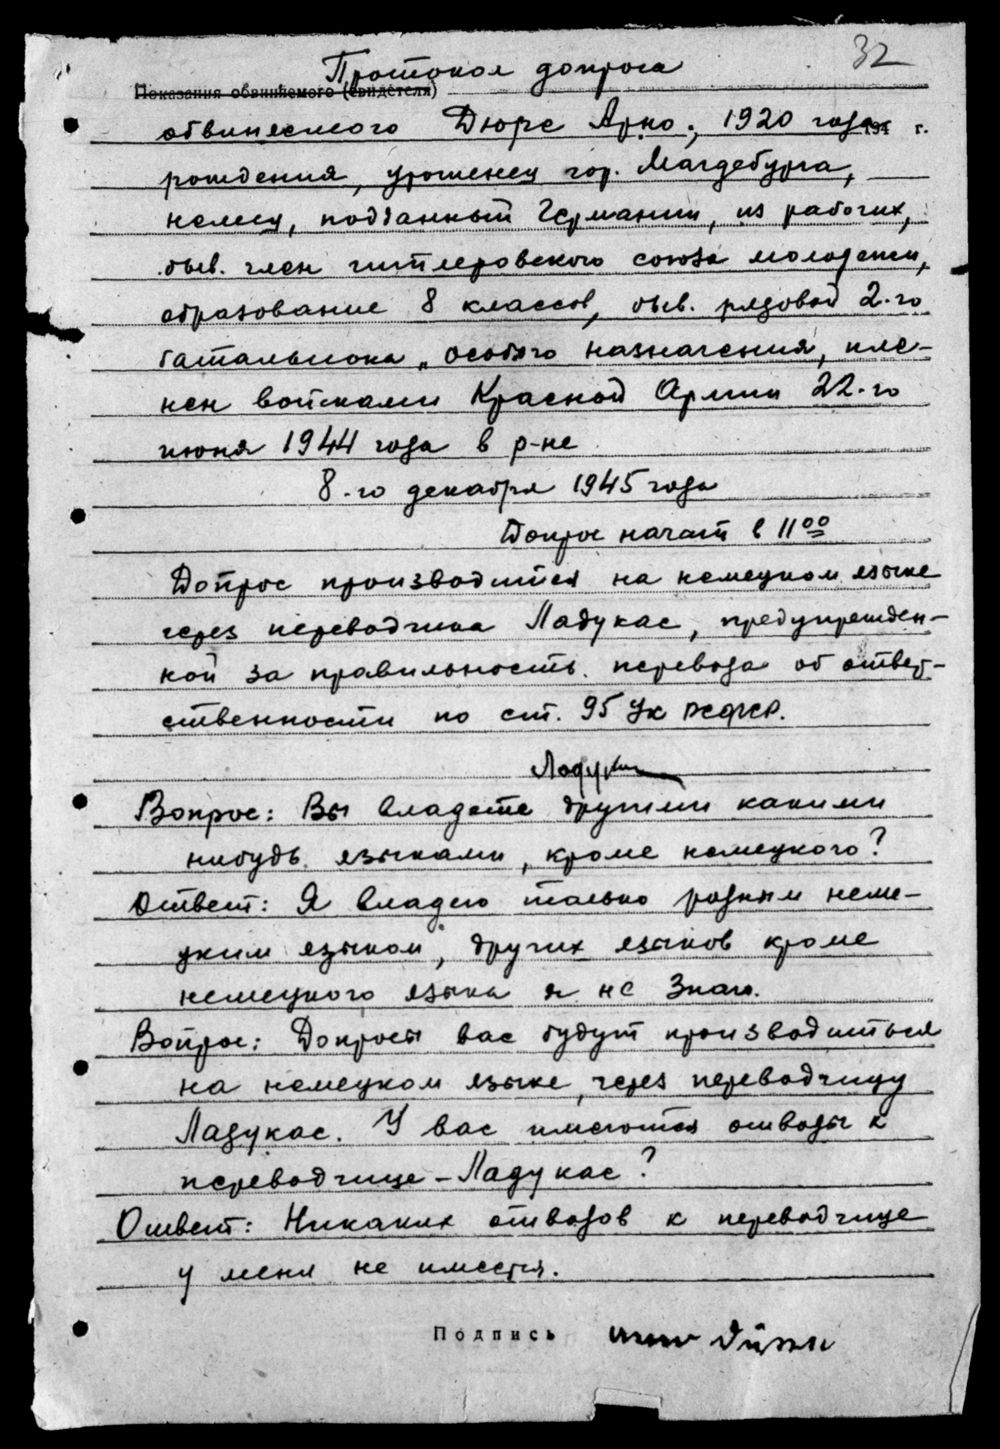 32
Протокол допроса
Показания обвиняемого (свидетеля)
обвиняемого Дюрс Арно, 1920 года 194 г.
рождения, уроженец гор. Магдебурга,
немец, подданный Германии, из рабочих,
быв. член гитлеровского союза молодежи,
образование 8 классов, быв. рядовой 2-го
батальиона „особого назначения, пле-
нен войсками Красной Армии 22-го
июня 1944 года в р-не
8-го декабря 1945 года
Допрос начат в 11 00
Допрос производится на немецком языке
через переводчика Ладукас, предупрежден-
ной за правильность перевода об ответ-
ственности по ст. 95 УК РСФСР.
Вопрос: Вы владеете другими какими
нибудь языками, кроме немецкого?
Ответ: Я владею только родным неме-
цким языком, других языков кроме
немецкого языка я не знаю.
Вопрос: Допросы вас будут производиться
на немецком языке, через переводчицу
Ладукас. У вас имеются отводы к
переводчице - Ладукас?
Ответ: Никаких отводов к переводчице
у меня не имеется.
Подпись